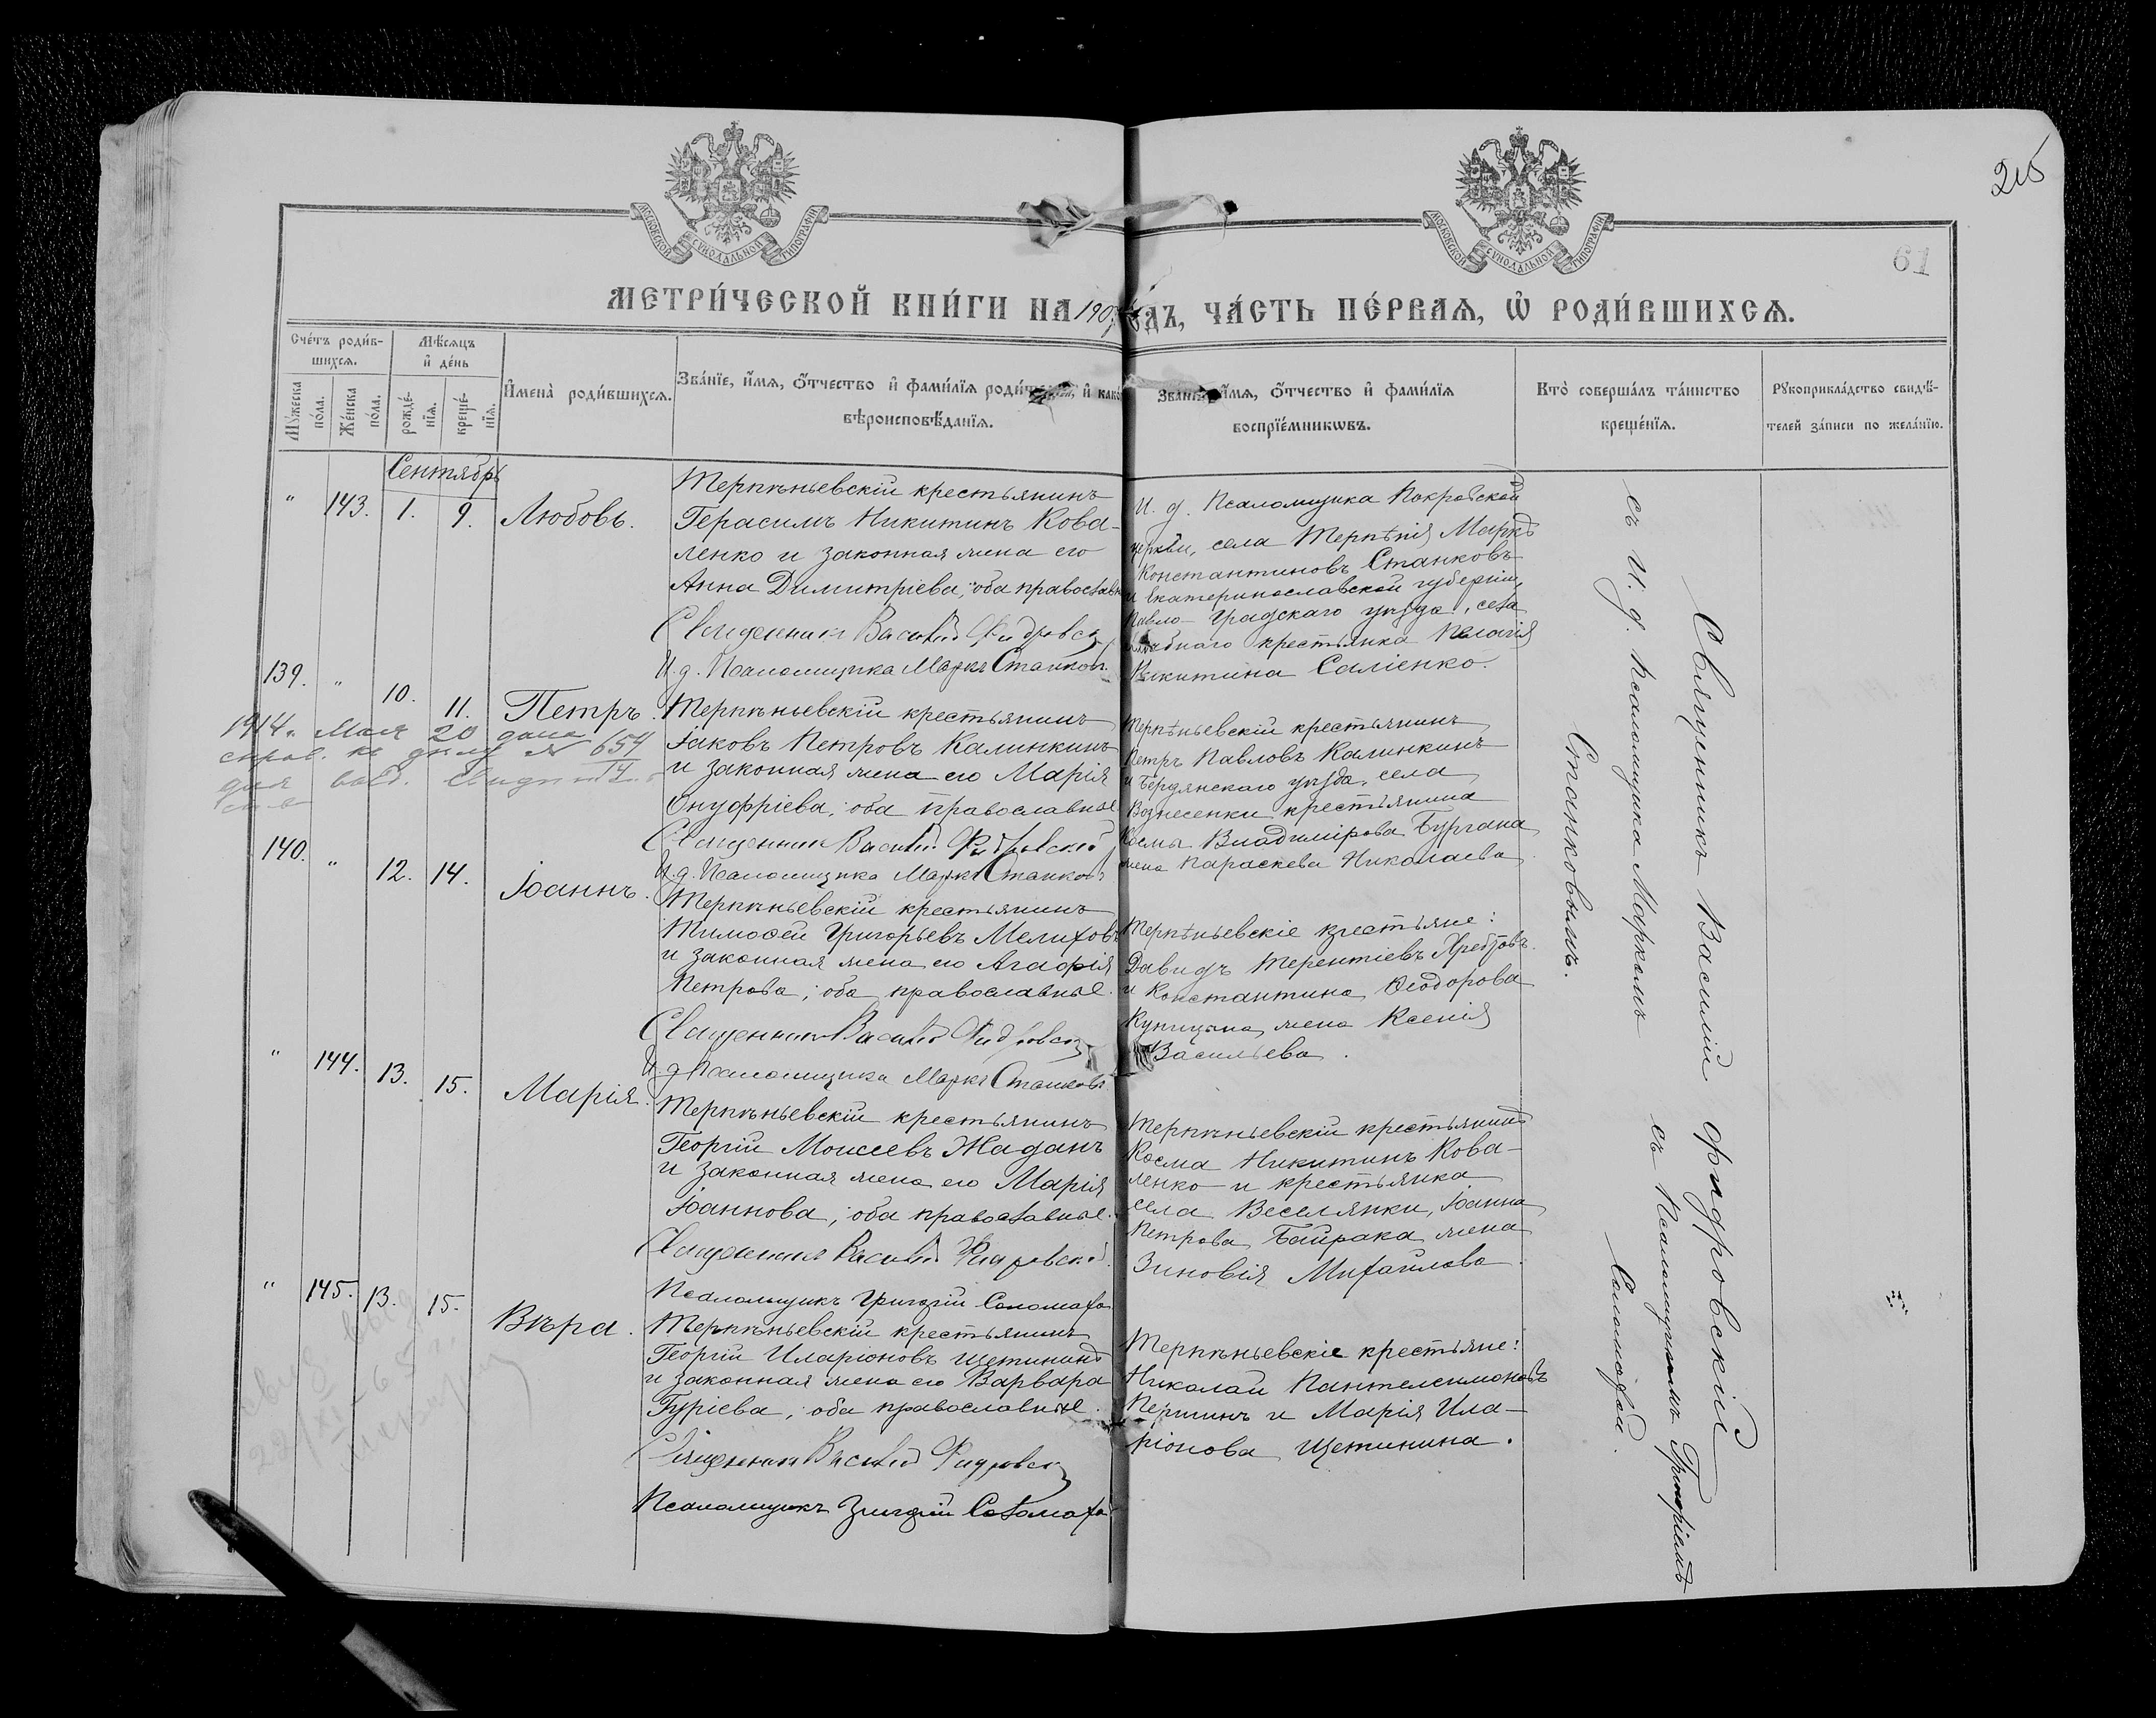 215
61
МОСКОВСКОЙ СѴНОДАЛЬНОЙ ТИПОГРАФІИ
МОСКОВСКОЙ СѴНОДАЛЬНОЙ ТИПОГРАФІИ
МЕТРИ́ЧЕСКОЙ КНИ́ГИ НА 190 ДЪ, ЧА́СТЬ ПЕ́РВАЯ, Ѡ҆ РОДИ́ВШИХСЯ.
Сче́тъ роди́в-
шихся.
Мѣ́сяцъ
и҆ де́нь
Мꙋ́жеска
по́ла.
Же́нска
по́ла.
рожде́-
нїя.
креще́-
нїя.
И҆мена̀ роди́вшихся.
Зва́нїе, и҆́мя, ѻ҆́тчество и҆ фами́лїя роди́телей, и҆ како́
вѣроисповѣ́данїя.
Зва́нїе, и҆́мя, ѻ҆́тчество и҆ фами́лїя
воспрїе́мникѡвъ.
Кто̀ соверша́лъ та́инство
креще́нїя.
Рꙋкоприкла́дство свидѣ́-
телей за́писи по жела́нїю.
Сентябрь
" 143. 1. 9. Любовь.
Терпѣньевскій крестьянинъ
Герасимъ Никитинъ Кова-
ленко и законная жена его
Анна Димитріева, оба православные
Священникъ Василій Фидровскій
И. д. Псаломщика Маркъ Станковъ
И. д. Псаломщика Покровской
церкви, села Терпѣнія Маркъ
Константиновъ Станковъ
и Екатеринославской губерніи,
Павло-Градскаго уѣзда, села
крестьянка Пелагія
Никитина Саліенко.
139. " 10. 11. Петръ.
1914 г. Мая 20 дана
справ. къ дѣлу № 654
Терпѣньевскій крестьянинъ
Іаковъ Петровъ Калинкинъ
и законная жена его Марія
Онуфріева, оба православные
Священникъ Василій Фидровскій
И. д. Псаломщика Маркъ Станковъ
Терпѣньевскій крестьянинъ
Петръ Павловъ Калинкинъ
и Бердянскаго уѣзда, села
Вознесенки крестьянина
Космы Владимірова Бургана
жена Параскева Николаева
140. " 12. 14. Іоаннъ.
Терпѣньевскій крестьянинъ
Тимоѳей Григорьевъ Мелиховъ
и законная жена его Агаѳія
Петрова; оба православные.
Священникъ Василій Фидровскій
И. д. Псаломщика Маркъ Станковъ
Терпѣньевскіе крестьяне:
Давидъ Терентіевъ Хребтовъ
и Константина Ѳеодорова
Купицына жена Ксенія
Васильева.
" 144. 13. 15. Марія.
Терпѣньевскій крестьянинъ
Георгій Моисеевъ Жаданъ
и законная жена его Марія
Іоаннова; оба православные.
Священникъ Василій Фидровскій
Псаломщикъ Григорій Соломаха
Терпѣньевскій крестьянинъ
Косма Никитинъ Кова-
ленко и крестьянка
села Веселянки, Іоанна
Петрова Байрака жена
Зиновія Михайлова.
" 145. 13. 15. Вѣра.
Терпѣньевскій крестьянинъ
Георгій Иларіоновъ Щетининъ
и законная жена его Варвара
Гуріева; оба православные.
Священникъ Василій Фидровскій
Псаломщикъ Григорій Соломаха
Терпѣньевскіе крестьяне:
Николай Пантелеимоновъ
Першинъ и Марія Ила-
ріонова Щетинина.
Священникъ Василій Фидровскій
съ И. д. Псаломщика Маркомъ
Станковымъ.
съ Псаломщикомъ Григоріемъ
Соломахой.